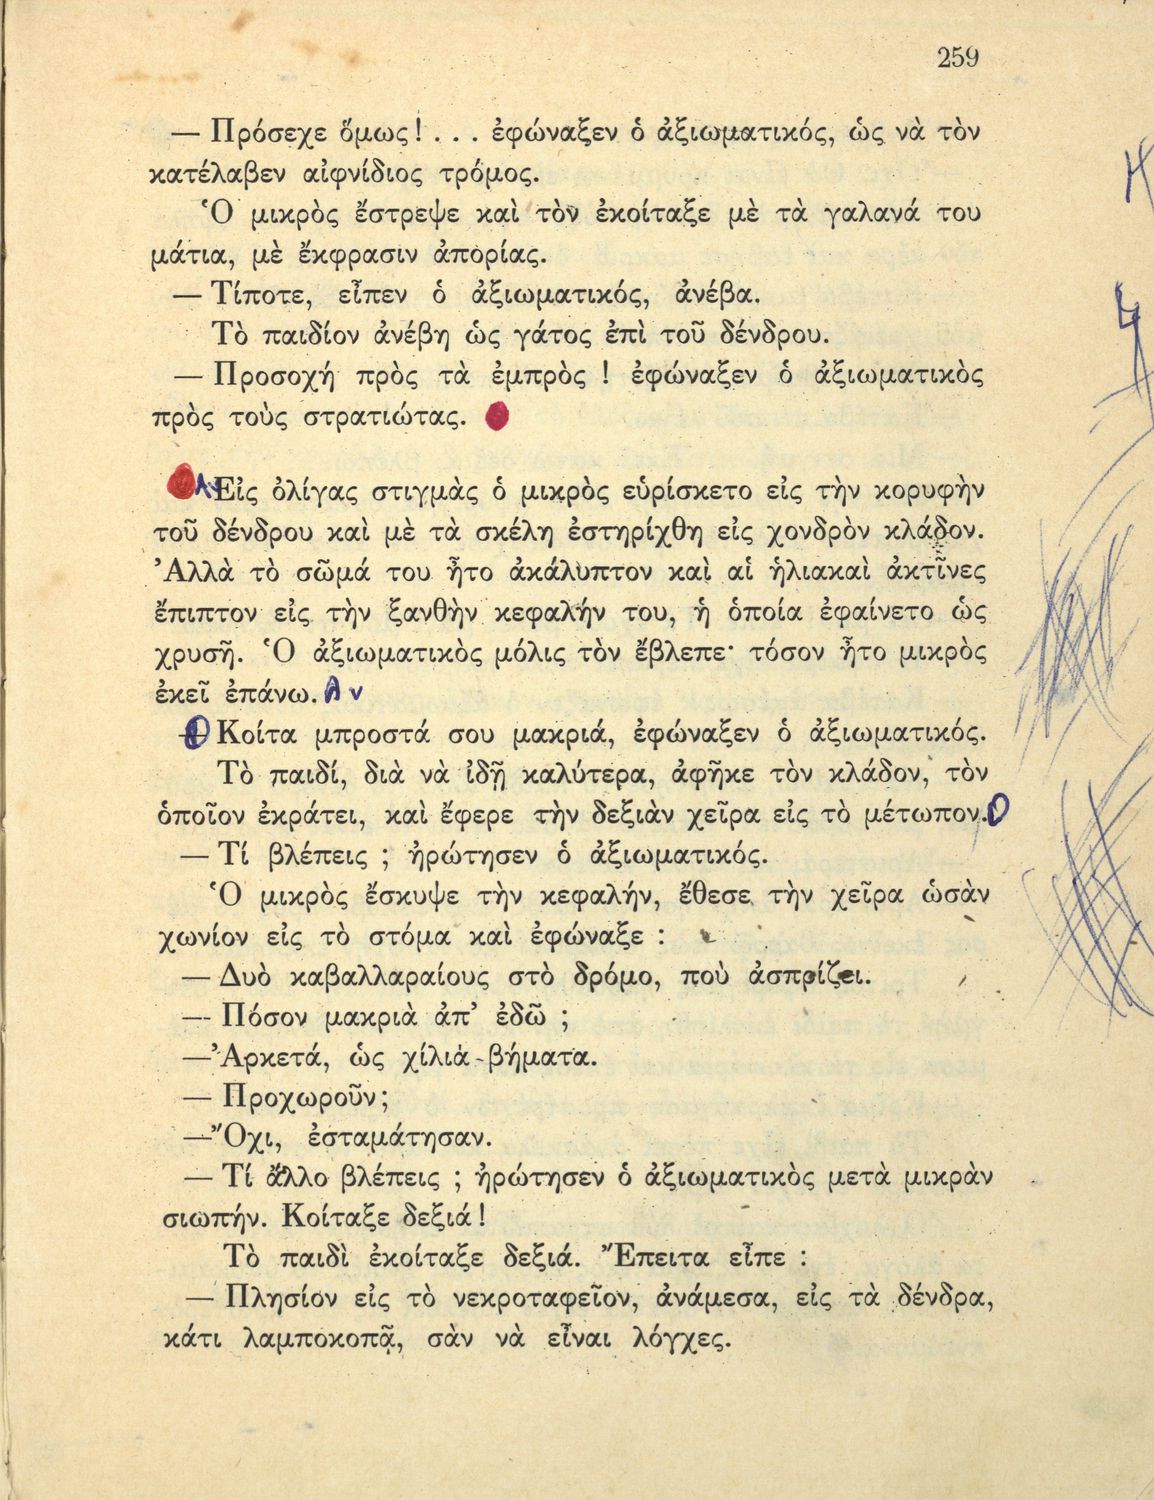 259
— Πρόσεχε ὅμως!... ἐφώναξεν ὁ ἀξιωματικός, ὡς νὰ τὸν
κατέλαβεν αἰφνίδιος τρόμος.
Ὁ μικρὸς ἔστρεψε καὶ τὸν ἐκοίταξε μὲ τὰ γαλανά του
μάτια, μὲ ἔκφρασιν ἀπορίας.
— Τίποτε, εἶπεν ὁ ἀξιωματικός, ἀνέβα.
Τὸ παιδίον ἀνέβη ὡς γάτος ἐπὶ τοῦ δένδρου.
— Προσοχή πρὸς τὰ ἐμπρὸς ! ἐφώναξεν ὁ ἀξιωματικὸς
πρὸς τοὺς στρατιώτας.
Εἰς ὀλίγας στιγμὰς ὁ μικρὸς εὑρίσκετο εἰς τὴν κορυφὴν
τοῦ δένδρου καὶ μὲ τὰ σκέλη ἐστηρίχθη εἰς χονδρὸν κλάδον.
Ἀλλὰ τὸ σῶμά του ἦτο ἀκάλυπτον καὶ αἱ ἡλιακαὶ ἀκτῖνες
ἔπιπτον εἰς τὴν ξανθὴν κεφαλήν του, ἡ ὁποία ἐφαίνετο ὡς
χρυσῆ. Ὁ ἀξιωματικὸς μόλις τὸν ἔβλεπε· τόσον ἦτο μικρὸς
ἐκεῖ ἐπάνω.
— Κοίτα μπροστά σου μακριά, ἐφώναξεν ὁ ἀξιωματικός.
Τὸ παιδί, διὰ νὰ ἰδῇ καλύτερα, ἀφῆκε τὸν κλάδον, τὸν
ὁποῖον ἐκράτει, καὶ ἔφερε τὴν δεξιὰν χεῖρα εἰς τὸ μέτωπον.
— Τί βλέπεις ; ἠρώτησεν ὁ ἀξιωματικός.
Ὁ μικρὸς ἔσκυψε τὴν κεφαλήν, ἔθεσε τὴν χεῖρα ὡσὰν
χωνίον εἰς τὸ στόμα καὶ ἐφώναξε :
— Δυὸ καβαλλαραίους στὸ δρόμο, ποὺ ἀσπρίζει.
— Πόσον μακριὰ ἀπ' ἐδῶ ;
— Ἀρκετά, ὡς χίλια βήματα.
— Προχωροῦν;
— Ὄχι, ἐσταμάτησαν.
— Τί ἄλλο βλέπεις ; ἠρώτησεν ὁ ἀξιωματικὸς μετὰ μικρὰν
σιωπήν. Κοίταξε δεξιά!
Τὸ παιδὶ ἐκοίταξε δεξιά. Ἔπειτα εἶπε :
— Πλησίον εἰς τὸ νεκροταφεῖον, ἀνάμεσα, εἰς τὰ δένδρα,
κάτι λαμποκοπᾷ, σὰν νὰ εἶναι λόγχες.